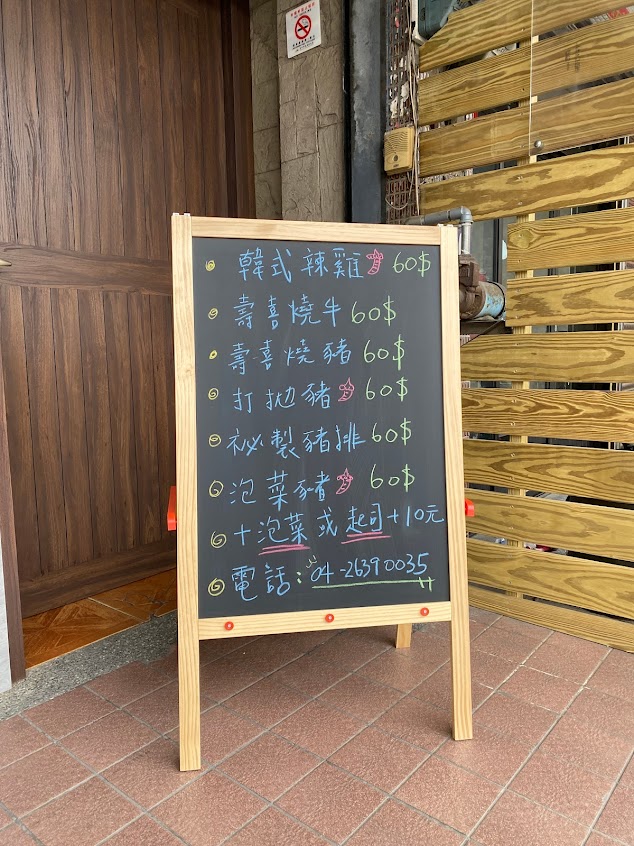 韓式辣雞 60$
壽喜燒牛 60$
壽喜燒豬 60$
打拋豬 60$
祕製豬排 60$
泡菜豬 60$
+泡菜或起司+10元
電話:04-26390035